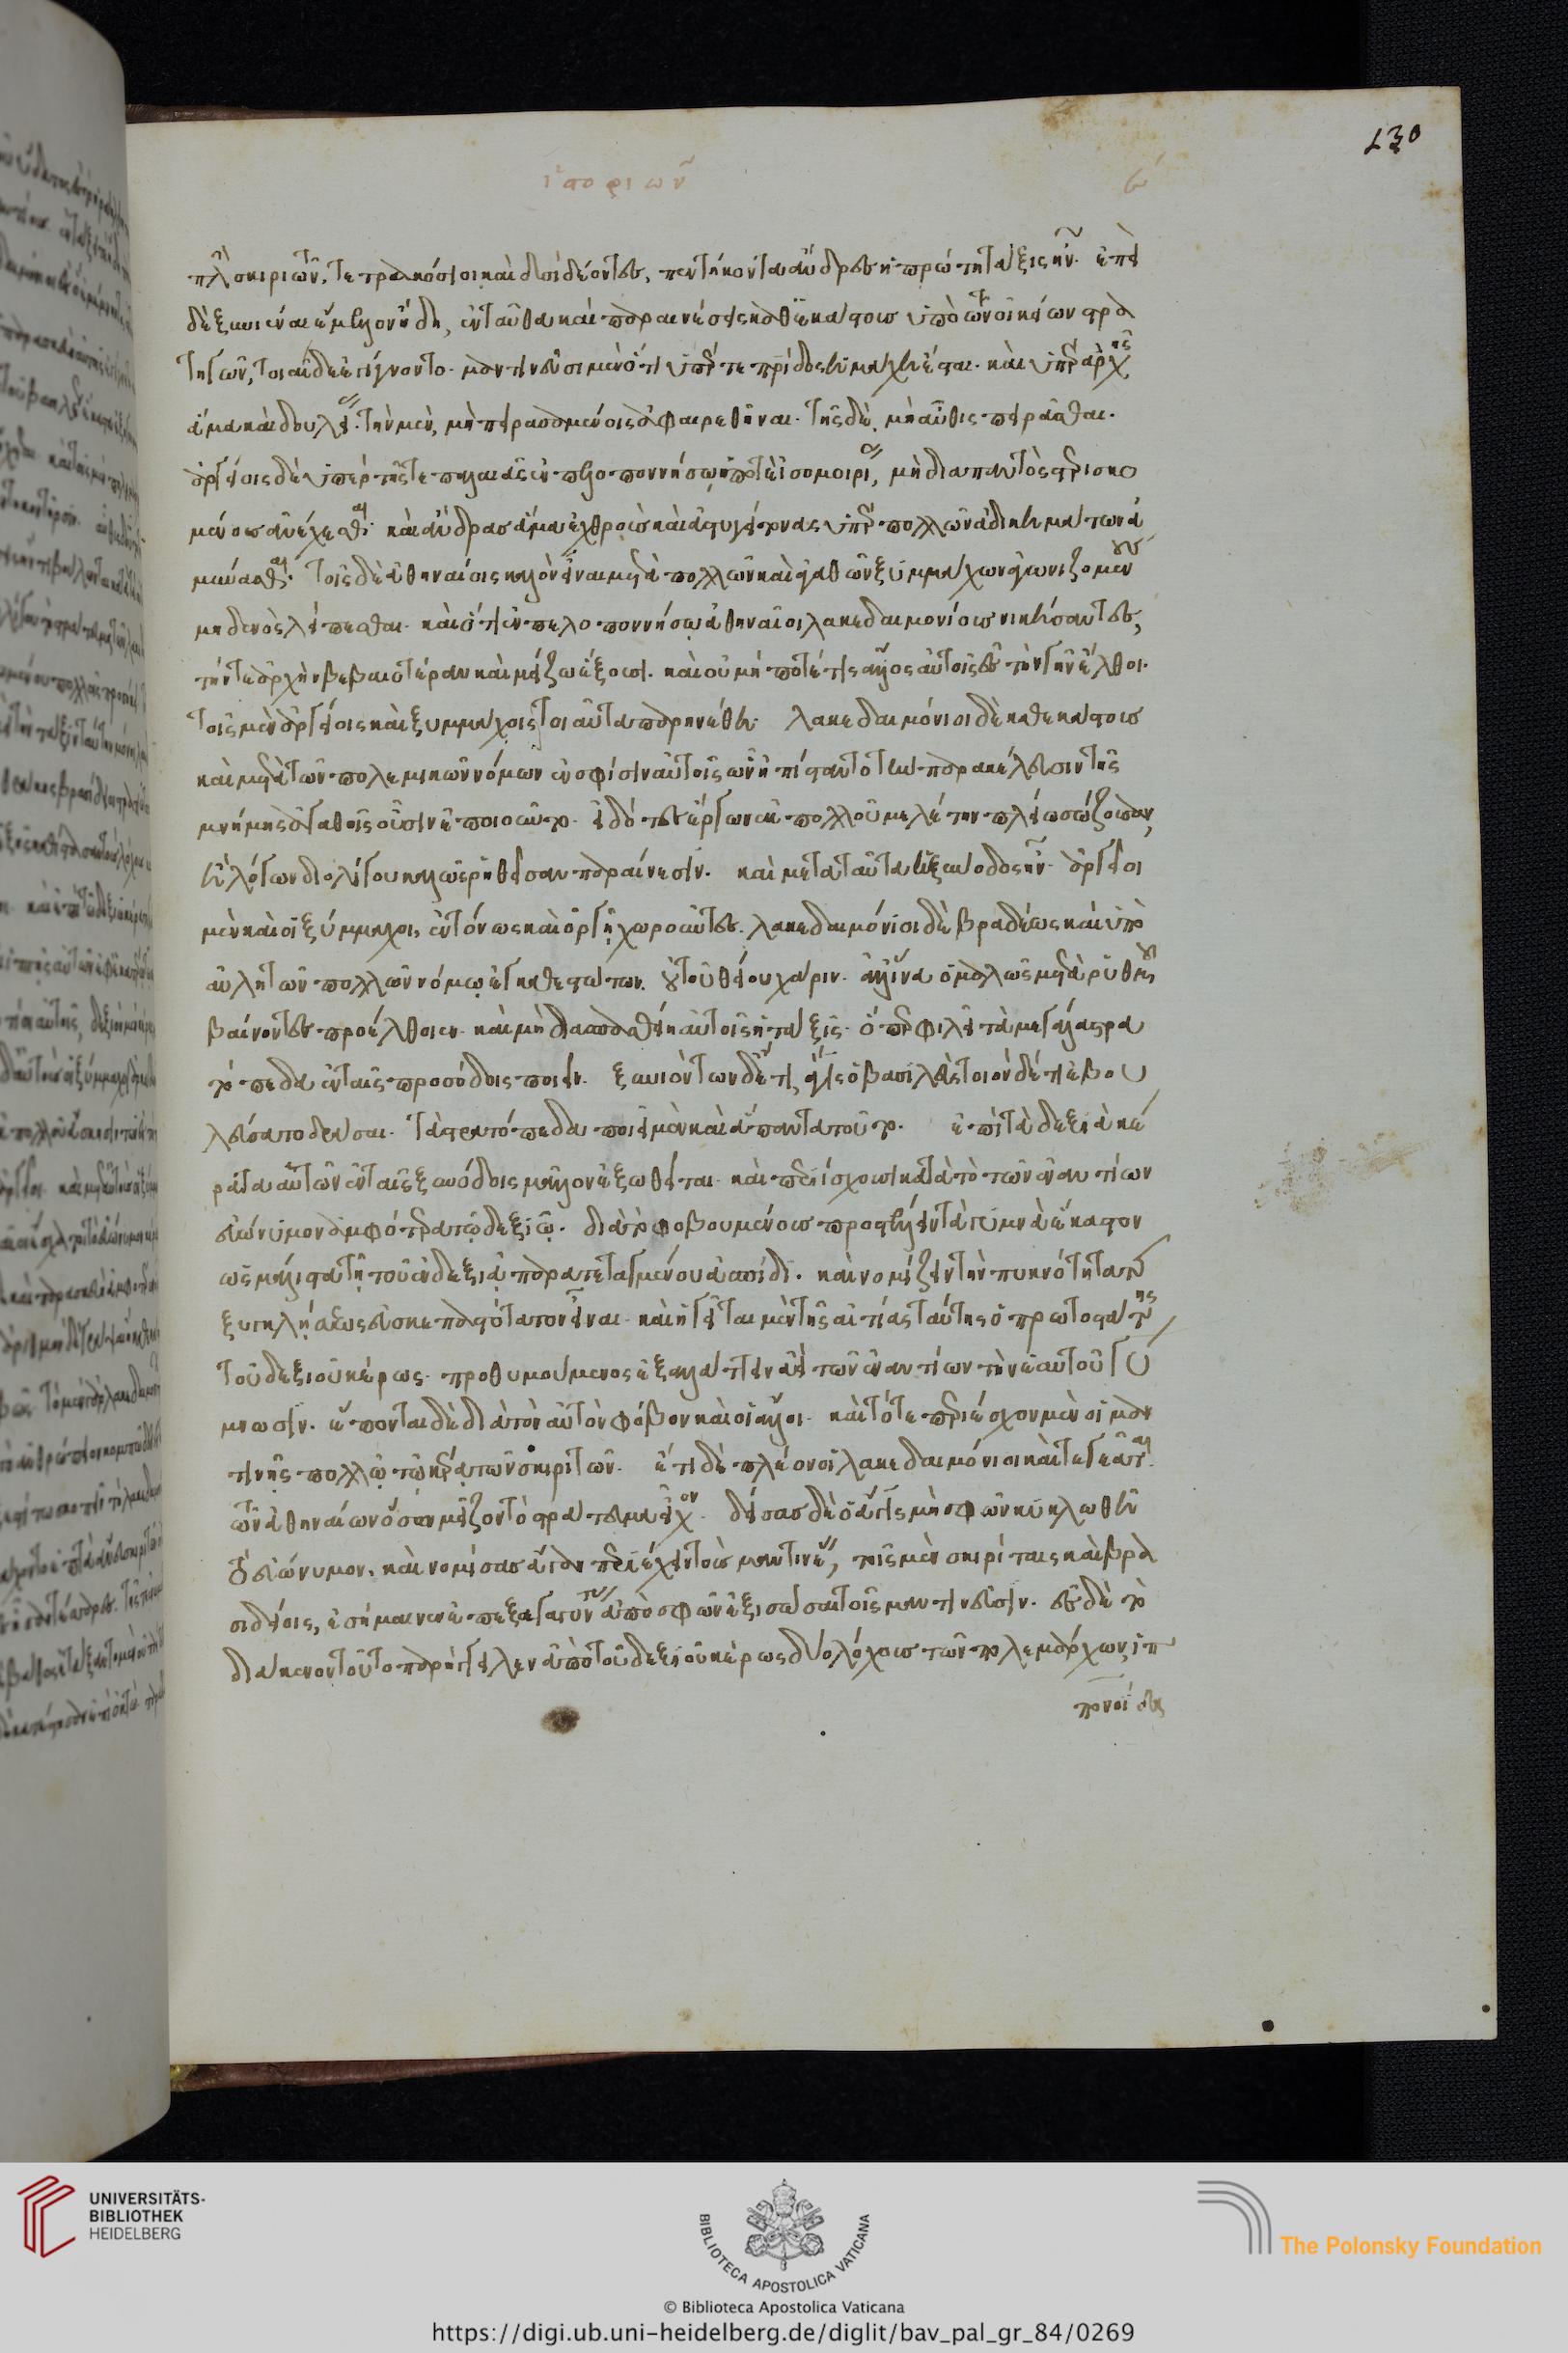 ἱστοριῶν ϛ´
130
πλὴν σκιριτῶν, τετρακόσιοι καὶ δυοῖ δέοντες, πεντήκοντα ἄνδρες ἡ πρώτη τάξις ἦν. ἐπεὶ
δὲ ξυνιέναι ἔμελλον ἤδη, ἐνταῦθα καὶ παραινέσεις καθ' ἑκάστους ὑπὸ τῶν οἰκείων στρα
τηγῶν, τοιαίδε ἐγίγνοντο. μαντινεῦσι μὲν ὅτι ὑπέρ τε πατρίδος ἡ μάχη ἔσται. καὶ ὑπὲρ ἀρχῆς
ἅμα καὶ δουλείας. τὴν μὲν, μὴ πειρασαμένοις ἀφαιρεθῆναι. τῆς δὲ, μὴ αὖθις πειρᾶσθαι.
ἀργείοις δὲ ὑπὲρ τῆς τε παλαιᾶς ἐν πελοποννήσῳ ποτὲ ἰσομοιρίας, μὴ διαπαντὸς στερισκο
μένους ἀνέχεσθαι. καὶ ἄνδρας ἅμα ἐχθροὺς καὶ ἀστυγείτονας ὑπὲρ πολλῶν ἀδικημάτων ἀ
μύνασθαι. τοῖς δὲ ἀθηναίοις καλὸν εἶναι μετὰ πολλῶν καὶ ἀγαθῶν ξυμμάχων ἀγωνιζομένους
μηδενὸς λείπεσθαι. καὶ ὅτι ἐν πελοποννήσῳ ἀθηναῖοι λακεδαιμονίους νικήσαντες,
τήν τε ἀρχὴν βεβαιοτέραν καὶ μείζω ἕξουσι. καὶ οὐ μή ποτέ τις ἄλλος αὐτοῖς ἐς τὴν γῆν ἔλθοι.
τοῖς μὲν ἀργείοις καὶ ξυμμάχοις τοιαῦτα παρηνέθη. λακεδαιμόνιοι δὲ καθ' ἑκάστους
καὶ μετὰ τῶν πολεμικῶν νόμων ἐν σφίσιν αὐτοῖς ὧν ἠπίσταντο τὴν παρακέλευσιν τῆς
μνήμης ἀγαθοῖς οὖσιν ἐποιοῦντο. εἰδότες ἔργων ἐκ πολλοῦ μελέτην πλείω σώζουσαν,
ἢ λόγων δι' ὀλίγου καλῶς ῥηθεῖσαν παραίνεσιν. καὶ μετὰ ταῦτα ἡ ξύνοδος ἦν. ἀργεῖοι
μὲν καὶ οἱ ξύμμαχοι, ἐντόνως καὶ ὀργῇ χωροῦντες. λακεδαιμόνιοι δὲ βραδέως καὶ ὑπὸ
αὐλητῶν πολλῶν νόμῳ ἐγκαθεστώτων. οὐ τοῦ θείου χάριν. ἀλλ' ἵνα ὁμαλῶς μετὰ ῥυθμοῦ
βαίνοντες προέλθοιεν. καὶ μὴ διασπασθείη αὐτοῖς ἡ τάξις. ὅπερ φιλεῖ τὰ μεγάλα στρα
τόπεδα ἐν ταῖς προσόδοις ποιεῖν. ξυνιόντων δ' ἔτι, ἆγις ὁ βασιλεὺς τοιόνδε τι ἐβου
λεύσατο δρᾶσαι. τὰ στρατόπεδα ποιεῖ μὲν καὶ ἅπαντα τοῦτο. ἐπὶ τὰ δεξιὰ κέ
ρατα αὐτῶν ἐν ταῖς ξυνόδοις μᾶλλον ἐξωθεῖται. καὶ περιίσχουσι κατὰ τὸ τῶν ἐναντίων
εὐώνυμον ἀμφότερα τῷ δεξιῷ. διὰ τὸ φοβουμένους προστέλλειν τὰ γυμνὰ ἕκαστον
ὡς μάλιστα τῇ τοῦ ἐν δεξιᾷ παρατεταγμένου ἀσπίδι. καὶ νομίζειν τὴν πυκνότητα τῆς
ξυγκλήσεως εὐσκεπαστότατον εἶναι. καὶ ἡγεῖται μὲν τῆς αἰτίας ταύτης ὁ πρωτοστάτης
τοῦ δεξιοῦ κέρως. προθυμούμενος ἐξαλλάττειν ἀεὶ τῶν ἐναντίων τὴν ἑαυτοῦ γύ
μνωσιν. ἕπονται δὲ διὰ τὸν αὐτὸν φόβον καὶ οἱ ἄλλοι. καὶ τότε περιέσχον μὲν οἱ μαν
τινῆς πολλῷ τῷ κέρᾳ τῶν σκιριτῶν. ἔτι δὲ πλέον οἱ λακεδαιμόνιοι καὶ τεγεᾶται
τῶν ἀθηναίων ὅσῳ μεῖζον τὸ στράτευμα εἶχον. δείσας δὲ ὁ ἆγις μὴ σφῶν κυκλωθῇ
τὸ εὐώνυμον, καὶ νομίσας ἄγαν περιέχειν τοὺς μαντινέας, τοῖς μὲν σκιρίταις καὶ βρα
σιδείοις, ἐσήμαινεν ἐπεξαγαγόντας ἀπὸ σφῶν ἐξισῶσαι τοῖς μαντινεῦσιν. ἐς δὲ τὸ
διάκενον τοῦτο παρήγγειλεν ἀπὸ τοῦ δεξιοῦ κέρως δύο λόχους τῶν πολεμάρχων ἱπ
πονοίδας
UNIVERSITÄTS-
BIBLIOTHEK
HEIDELBERG
BIBLIOTECA APOSTOLICA VATICANA
The Polonsky Foundation
© Biblioteca Apostolica Vaticana
https://digi.ub.uni-heidelberg.de/diglit/bav_pal_gr_84/0269